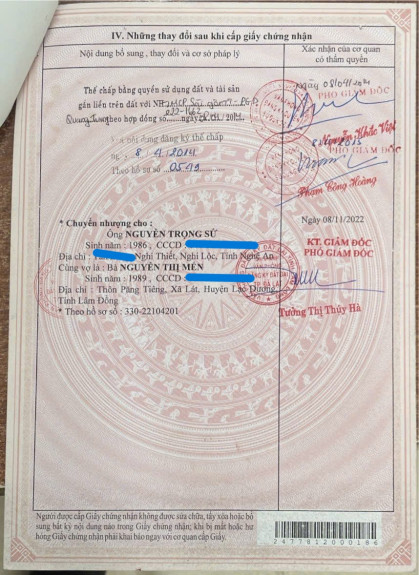 IV. Những thay đổi sau khi cấp giấy chứng nhận
Nội dung bổ sung, thay đổi và cơ sở pháp lý
Xác nhận của cơ quan
có thẩm quyền
Thế chấp bằng quyền sử dụng đất và tài sản
gắn liền trên đất với NH
Quang Trung theo hợp đồng số
nội dung đăng ký thế chấp
8/4/2014
Theo hồ sơ số 0549
Ngày 08/04/2014
PHÓ GIÁM ĐỐC
Nguyễn Khắc Việt
PHÓ GIÁM ĐỐC
Phạm Công Hoàng
* Chuyển nhượng cho :
Ông NGUYỄN TRỌNG SỬ
Sinh năm : 1986, CCCD
Địa chỉ : Nghi Thiết, Nghi Lộc, Tỉnh Nghệ An
Cùng vợ là : Bà NGUYỄN THỊ MẾN
Sinh năm : 1989, CCCD
Địa chỉ : Thôn Păng Tiêng, Xã Lát, Huyện Lạc Dương,
Tỉnh Lâm Đồng
* Theo hồ sơ số : 330-22104201
Ngày 08/11/2022
KT. GIÁM ĐỐC
PHÓ GIÁM ĐỐC
Tưởng Thị Thúy Hà
Người được cấp Giấy chứng nhận không được sửa chữa, tẩy xóa hoặc bổ
sung bất kỳ nội dung nào trong Giấy chứng nhận; khi bị mất hoặc hư
hỏng Giấy chứng nhận phải khai báo ngay với cơ quan cấp Giấy.